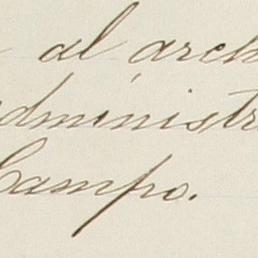 al arch
administr
Campo.